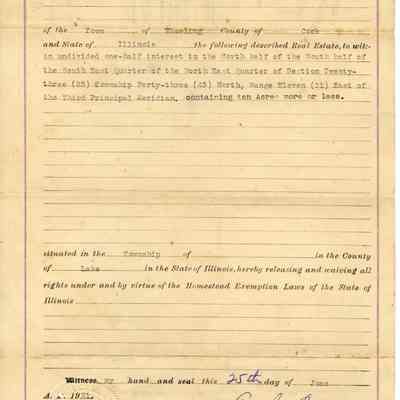 of the Town of Wheeling County of Cook
and State of Illinois the following described Real Estate, to wit:-
an undivided one-half interest to the North half of the South half of
the South East Quarter of the North East Quarter of Section Twenty-
three (23) Township Forty-three (43) North, Range Eleven (11) East of
the Third Principal Meridian, containing ten Acres more or less.
situated in the Township of in the County
of Lake in the State of Illinois, hereby releasing and waiving all
rights under and by virtue of the Homestead Exemption Laws of the State of
Illinois
Witness my hand and seal this 25th day of June
A. D. 19